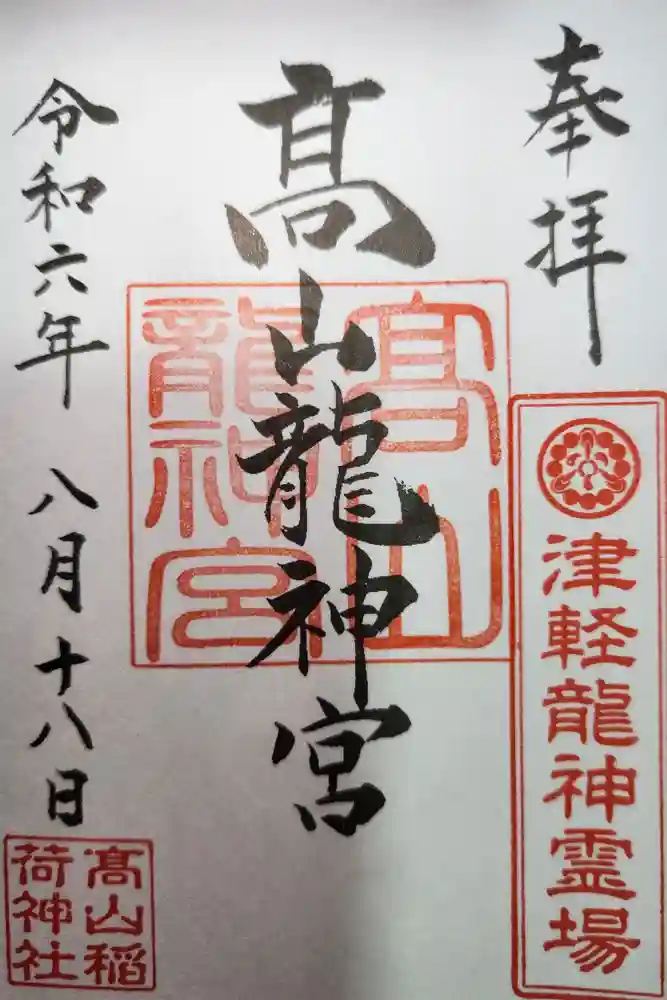 奉拝
津軽龍神霊場
髙山龍神宮
髙山
龍神宮
令和六年 八月十八日
髙山稲
荷神社